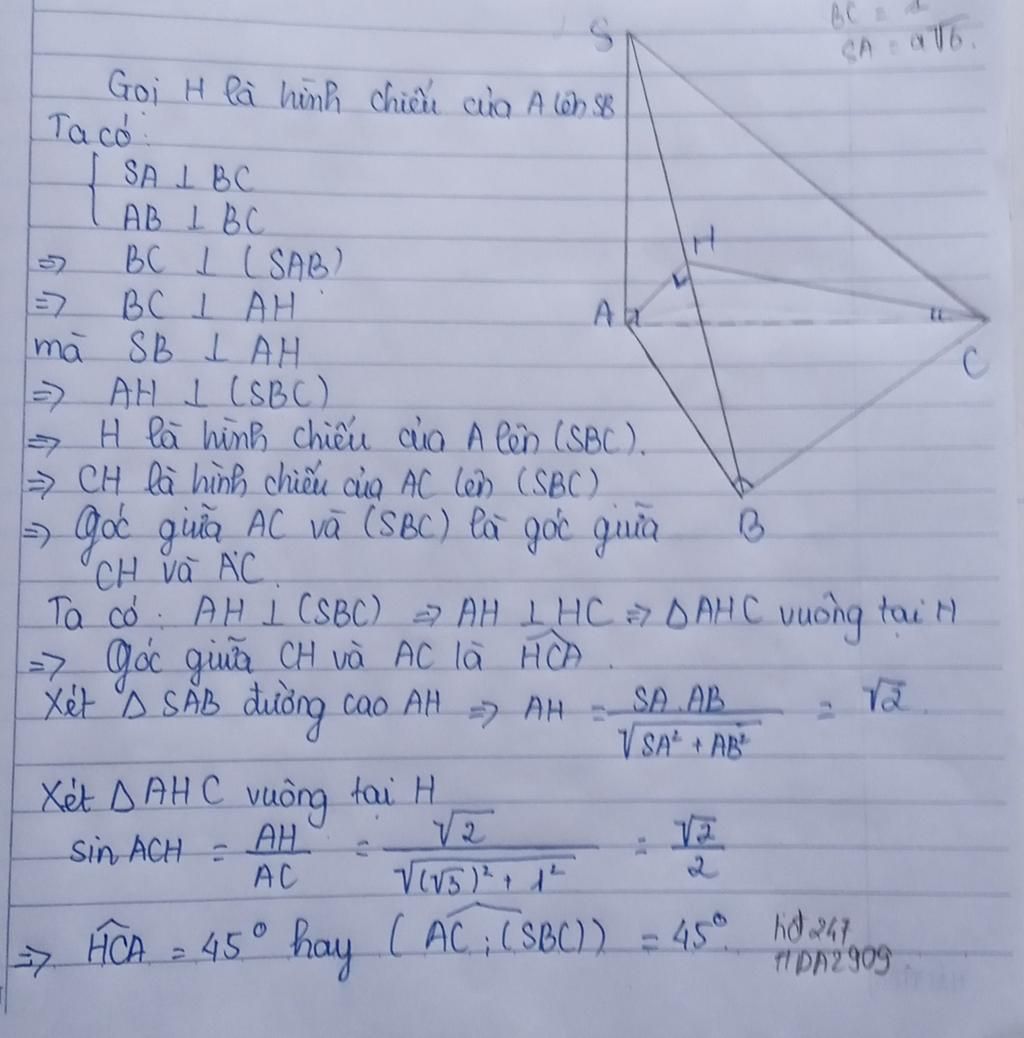 BC = 1
SA = a√6.
S
Gọi H là hình chiếu của A lên SB
Ta có:
{ SA ⊥ BC
AB ⊥ BC
⇒ BC ⊥ (SAB)
⇒ BC ⊥ AH
H
A
C
B
mà SB ⊥ AH
⇒ AH ⊥ (SBC)
⇒ H là hình chiếu của A lên (SBC).
⇒ CH là hình chiếu của AC lên (SBC)
⇒ Góc giữa AC và (SBC) là góc giữa
CH và AC.
Ta có: AH ⊥ (SBC) ⇒ AH ⊥ HC ⇒ ΔAHC vuông tại H
⇒ Góc giữa CH và AC là \widehat{HCA}.
Xét Δ SAB đường cao AH ⇒ AH = \frac{SA.AB}{\sqrt{SA² + AB²}} = √2.
Xét Δ AHC vuông tại H
sin ACH = \frac{AH}{AC} = \frac{√2}{\sqrt{(√3)² + 1²}} = \frac{√2}{2}
⇒ \widehat{HCA} = 45° hay (\widehat{AC; (SBC)}) = 45°.
hd247
HDA2909